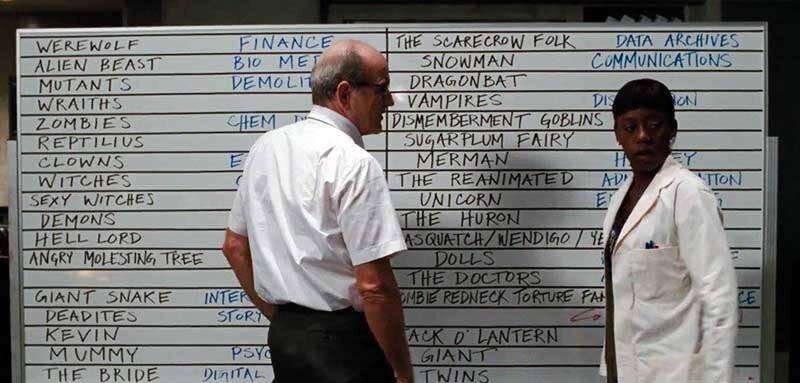 WEREWOLF FINANCE
ALIEN BEAST BIO
MUTANTS
WRAITHS
ZOMBIES CHEM
REPTILIUS
CLOWNS
WITCHES
SEXY WITCHES
DEMONS
HELL LORD
ANGRY MOLESTING TREE
GIANT SNAKE
DEADITES STORY
KEVIN
MUMMY
THE BRIDE DIGITAL
THE SCARECROW FOLK DATA ARCHIVES
SNOWMAN COMMUNICATIONS
DRAGONBAT
VAMPIRES
DISMEMBERMENT GOBLINS
SUGARPLUM FAIRY
MERMAN
THE REANIMATED
UNICORN
THE HURON
/WENDIGO /
DOLLS
THE DOCTORS
REDNECK TORTURE
O' LANTERN
GIANT
TWINS